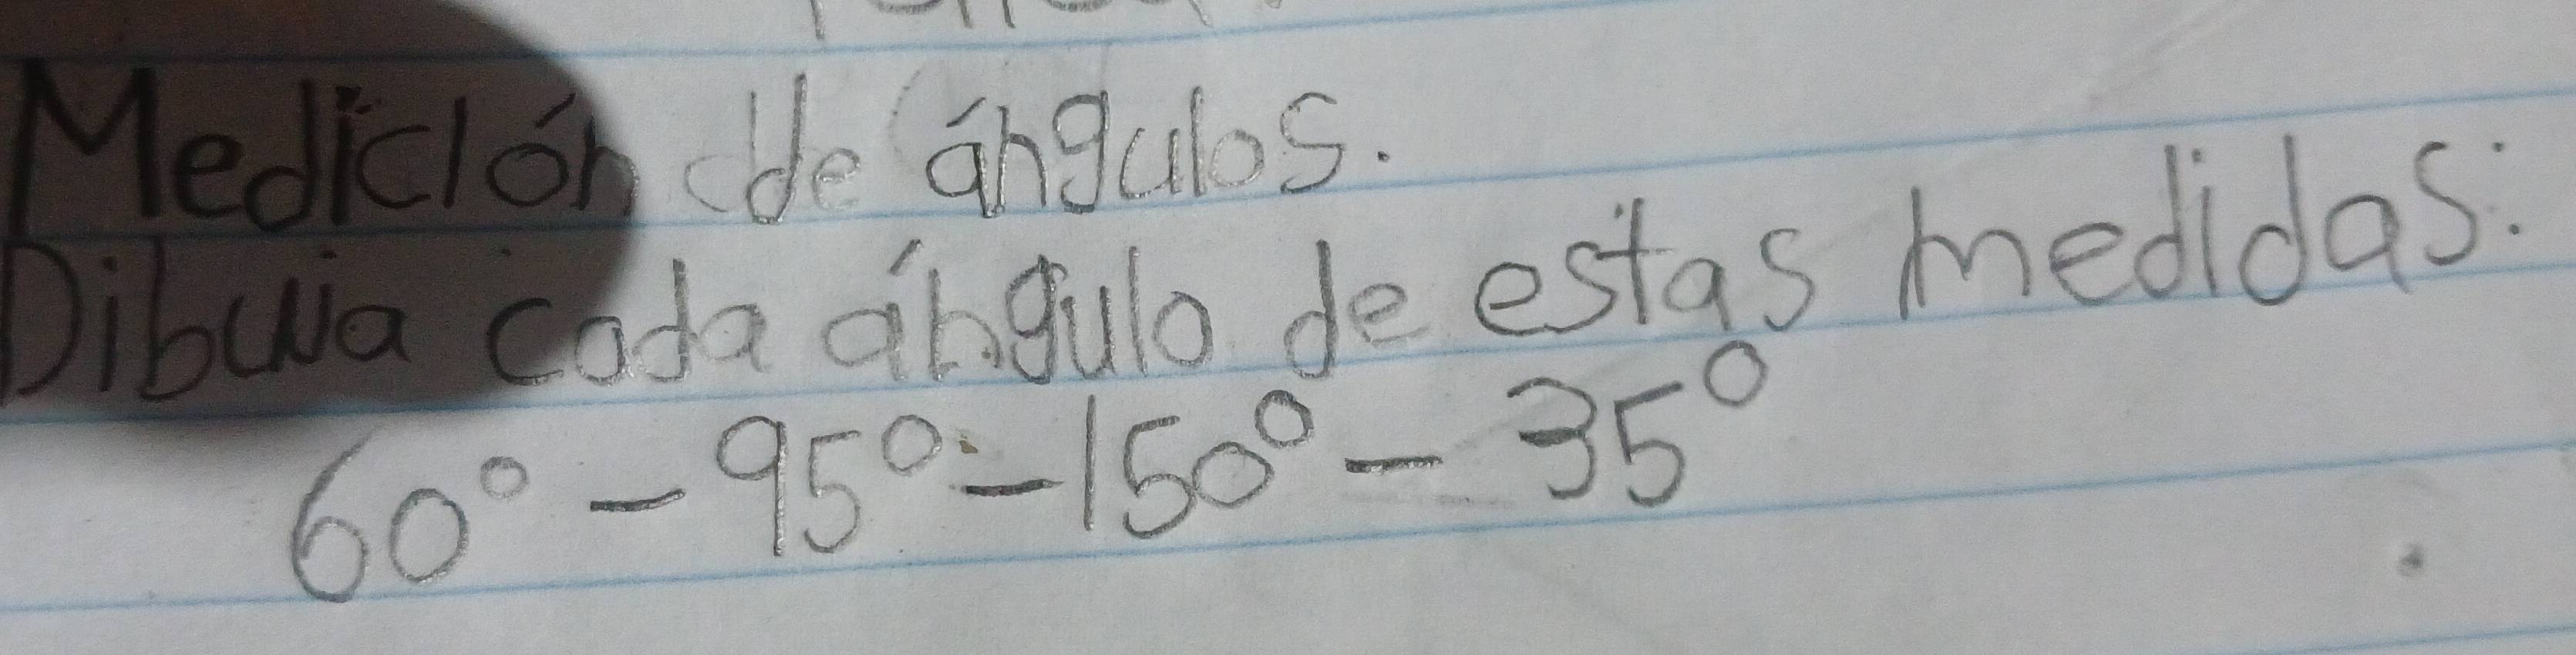 Medición de ángulos.
Dibuja cada ángulo de estas medidas:
60° - 95° - 150° - 35°